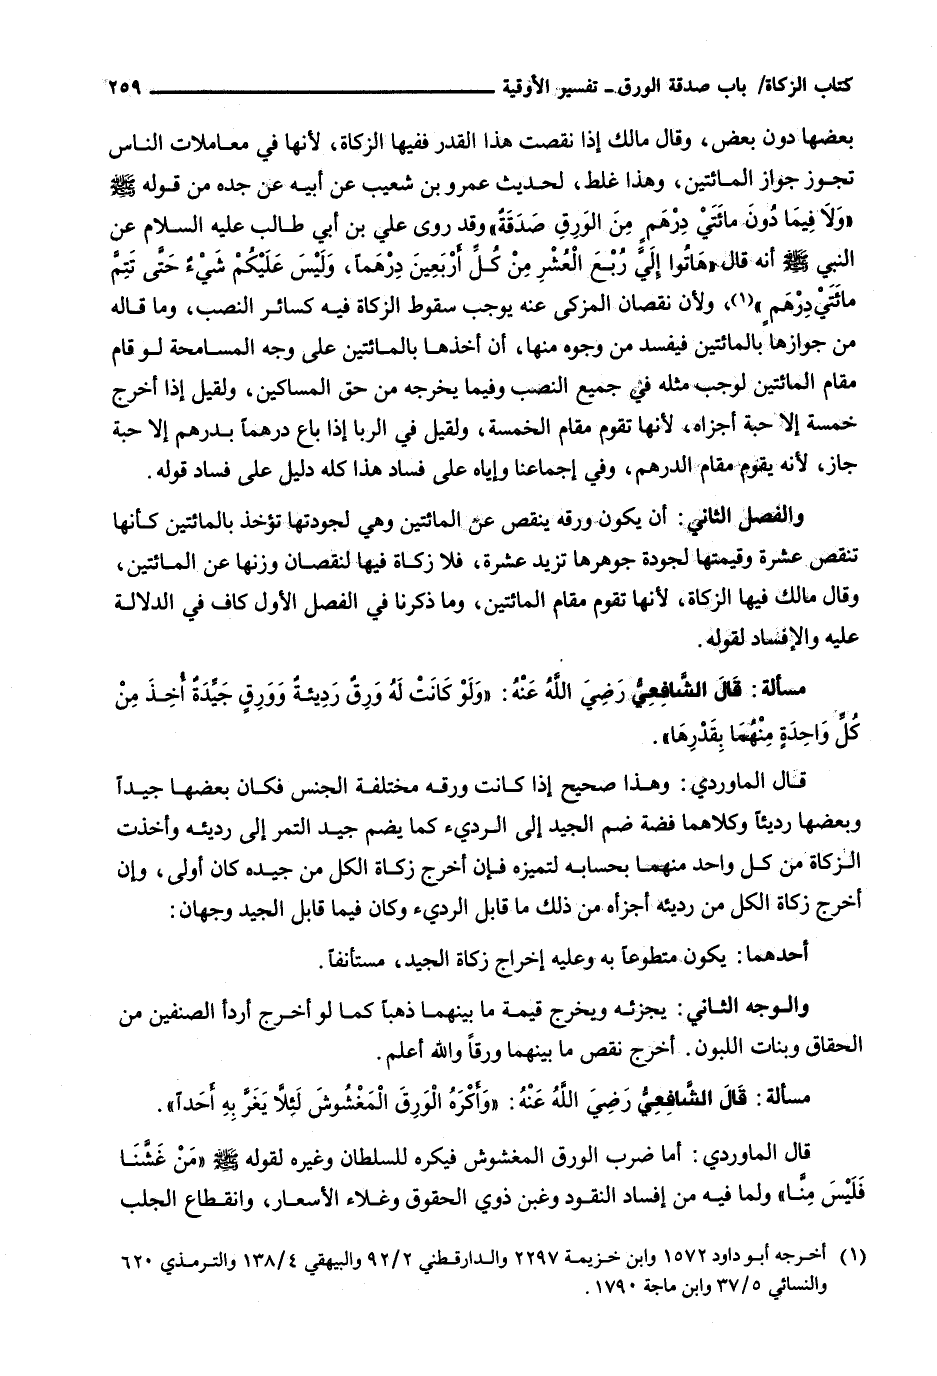 كتاب الزكاة/ باب صدقة الورق ـ تفسير الأوقية ــــــــــــــــــــــــــــــــ ٢٥٩
بعضها دون بعض، وقال مالك إذا نقصت هذا القدر ففيها الزكاة، لأنها في معاملات الناس
تجوز جواز المائتين، وهذا غلط، لحديث عمرو بن شعيب عن أبيه عن جده من قوله ﷺ
«وَلَا فِيمَا دُونَ مائَتَيْ دِرْهَمٍ مِنَ الوَرِقِ صَدَقَةٌ» وقد روى علي بن أبي طالب عليه السلام عن
النبي ﷺ أنه قال «هَاتُوا إِلَيَّ رُبْعَ الْعُشْرِ مِنْ كُلِّ أَرْبَعِينَ دِرْهَماً، وَلَيْسَ عَلَيْكُمْ شَيْءٌ حَتَّى تَتِمَّ
مائَتَيْ دِرْهَمٍ»(١)، ولأن نقصان المزكى عنه يوجب سقوط الزكاة فيه كسائر النصب، وما قاله
من جوازها بالمائتين فيفسد من وجوه منها، أن أخذها بالمائتين على وجه المسامحة لو قام
مقام المائتين لوجب مثله في جميع النصب وفيما يخرجه من حق المساكين، ولقيل إذا أخرج
خمسة إلا حبة أجزاه، لأنها تقوم مقام الخمسة، ولقيل في الربا إذا باع درهماً بدرهم إلا حبة
جاز، لأنه يقوم مقام الدرهم، وفي إجماعنا وإياه على فساد هذا كله دليل على فساد قوله.
والفصل الثاني: أن يكون ورقه ينقص عن المائتين وهي لجودتها تؤخذ بالمائتين كأنها
تنقص عشرة وقيمتها لجودة جوهرها تزيد عشرة، فلا زكاة فيها لنقصان وزنها عن المائتين،
وقال مالك فيها الزكاة، لأنها تقوم مقام المائتين، وما ذكرنا في الفصل الأول كاف في الدلالة
عليه والإفساد لقوله.
مسألة: قَالَ الشَّافِعِيُّ رَضِيَ اللَّهُ عَنْهُ: «وَلَوْ كَانَتْ لَهُ وَرِقٌ رَدِيئةٌ وَوَرِقٍ جَيِّدَةٌ أُخِذَ مِنْ
كُلِّ وَاحِدَةٍ مِنْهُمَا بِقَدْرِهَا».
قال الماوردي: وهذا صحيح إذا كانت ورقه مختلفة الجنس فكان بعضها جيداً
وبعضها رديئاً وكلاهما فضة ضم الجيد إلى الرديء كما يضم جيد التمر إلى رديئه وأخذت
الزكاة من كل واحد منهما بحسابه لتميزه فإن أخرج زكاة الكل من جيده كان أولى، وإن
أخرج زكاة الكل من رديئه أجزأه من ذلك ما قابل الرديء وكان فيما قابل الجيد وجهان:
أحدهما: يكون متطوعاً به وعليه إخراج زكاة الجيد، مستأنفاً.
والوجه الثاني: يجزئه ويخرج قيمة ما بينهما ذهباً كما لو أخرج أردأ الصنفين من
الحقاق وبنات اللبون. أخرج نقص ما بينهما ورقاً والله أعلم.
مسألة: قَالَ الشَّافِعِيُّ رَضِيَ اللَّهُ عَنْهُ: «وَأَكْرَهُ الْوَرِقَ الْمَغْشُوشَ لَئِلَّا يَغَرَّ بِهِ أَحَداً».
قال الماوردي: أما ضرب الورق المغشوش فيكره للسلطان وغيره لقوله ﷺ «مَنْ غَشَّنَا
فَلَيْسَ مِنَّا» ولما فيه من إفساد النقود وغبن ذوي الحقوق وغلاء الأسعار، وانقطاع الجلب
(١) أخرجه أبو داود ١٥٧٢ وابن خزيمة ٢٢٩٧ والدارقطني ٩٢/٢ والبيهقي ١٣٨/٤ والترمذي ٦٢٠
والنسائي ٣٧/٥ وابن ماجة ١٧٩٠.